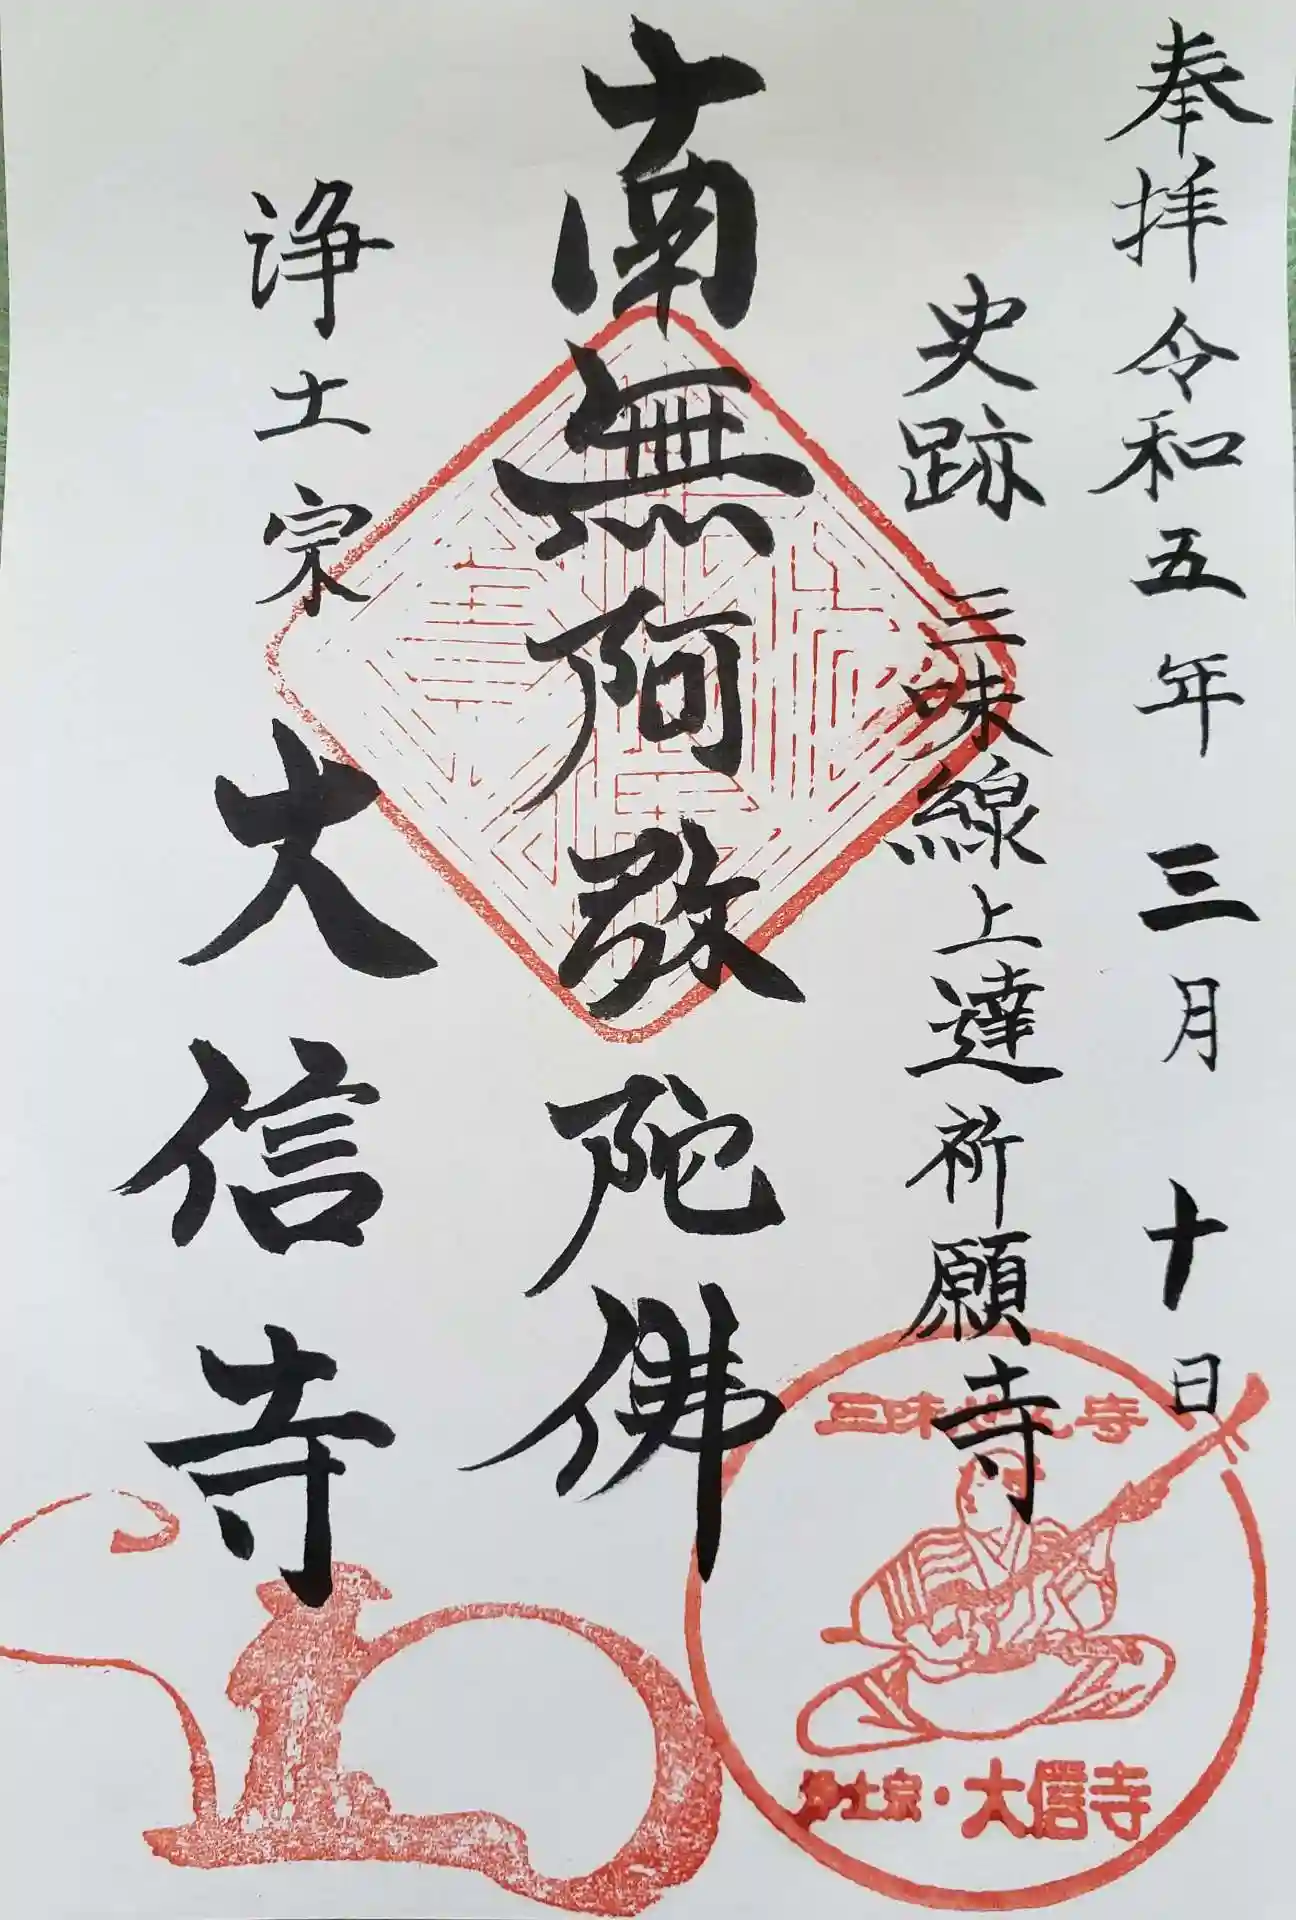 奉拝 令和五年 三月 十日
史跡 三味線上達祈願寺
南無阿弥陀佛
浄土宗
大信寺
浄土宗・大信寺